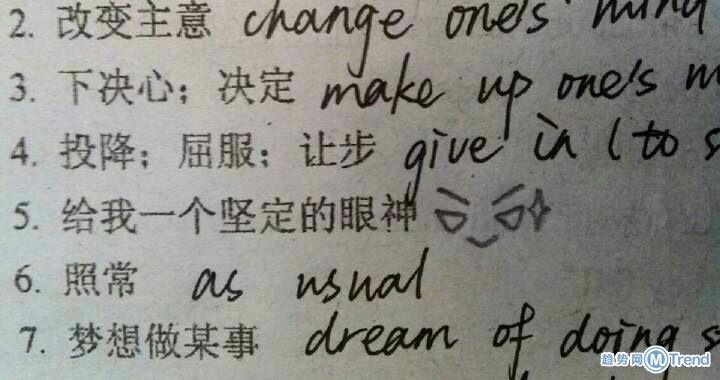 2. 改变主意 change one's mind
3. 下决心；决定 make up one's m
4. 投降；屈服；让步 give in (to s
5. 给我一个坚定的眼神
6. 照常 as usual
7. 梦想做某事 dream of doing s
趋势网 M Trend